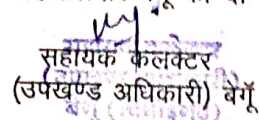 सहायक कलक्टर
(उपखण्ड अधिकारी) बेगूँ